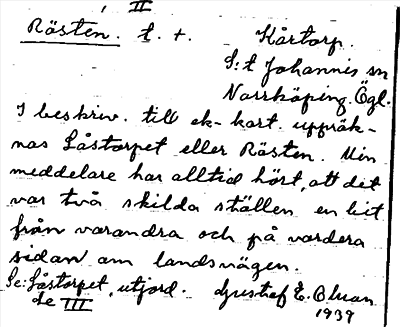 II
Rästen. t. +. Kårtorp.
S:t Johannis sn
Norrköping. Ögl.
I beskriv. till ek-kart. uppräk-
nas Låstorpet eller Rästen. Min
meddelare har alltid hört, att det
var två skilda ställen en bit
från varandra och på vardera
sidan om landsvägen.
Se: Låstorpet, utjord. Gustaf E. Olman
de III 1939